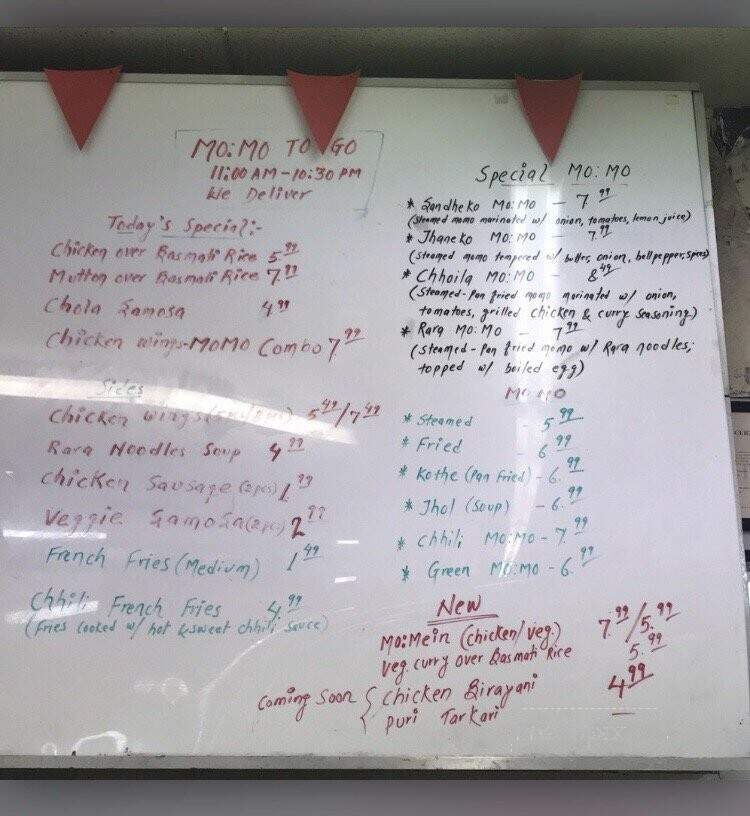 MO:MO TO GO
11:00 AM - 10:30 PM
We Deliver
Today's Special:-
Chicken over Basmati Rice 5.99
Mutton over Basmati Rice 7.99
Chola Samosa 4.99
Chicken wings-MOMO Combo 7.99
Sides
Chicken wings 5.49/7.49
Rara Noodles Soup 4.99
Chicken Sausage (2pcs) 1.99
Veggie Samosa (2pcs) 2.99
French Fries (Medium) 1.49
Chhili French Fries 4.99
(Fries cooked w/ hot & sweet chhili sauce)
Special MO:MO
* Sandheko MO:MO - 7.99
(Steamed momo marinated w/ onion, tomatoes, lemon juice)
* Jhaneko MO:MO - 7.99
(Steamed momo tempered w/ butter, onion, bellpepper, spices)
* Chhoila MO:MO - 8.49
(Steamed-Pan fried momo marinated w/ onion,
tomatoes, grilled chicken & curry seasoning)
* Rara MO:MO - 7.99
(Steamed-Pan fried momo w/ Rara noodles,
topped w/ boiled egg)
MO:MO
* Steamed - 5.99
* Fried - 6.99
* Kothe (Pan Fried) - 6.99
* Jhol (Soup) - 6.99
* Chhili MO:MO - 7.99
* Green MO:MO - 6.99
New
MO:Mein (chicken/veg.) 7.99/5.99
Veg. curry over Basmati Rice 5.99
Coming Soon { Chicken Birayani 4.99
Puri Tarkari